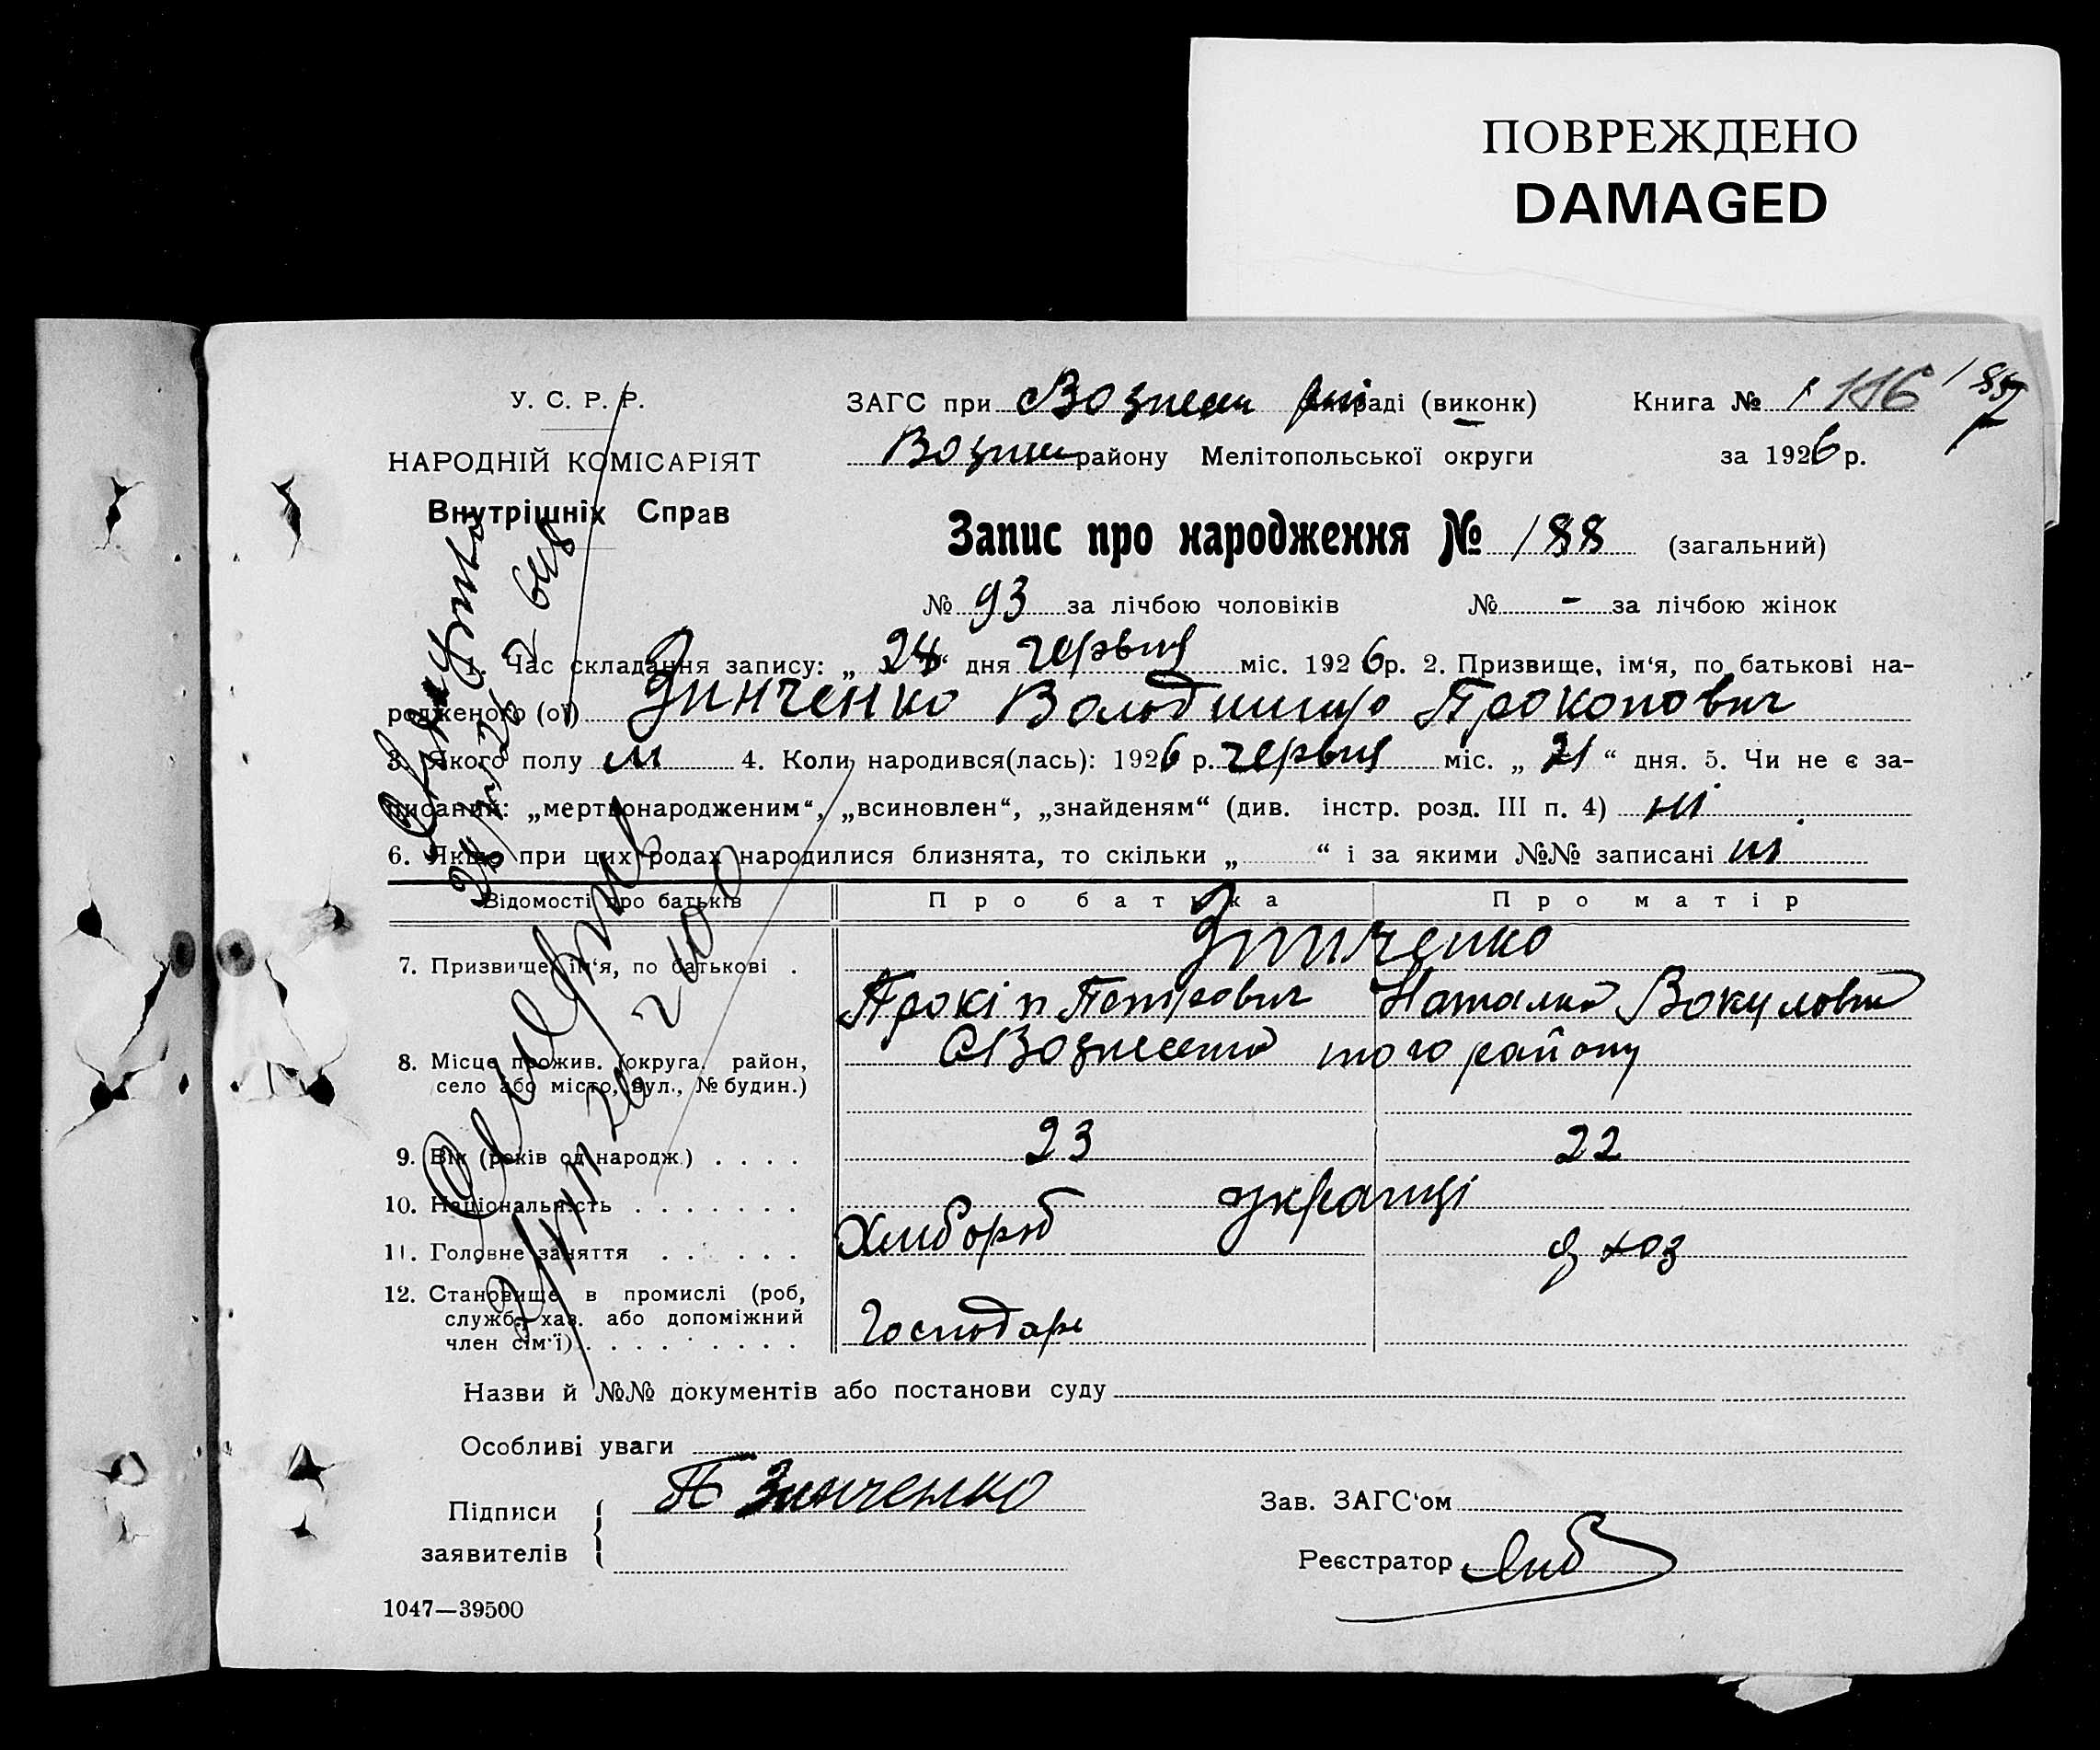 ПОВРЕЖДЕНО
DAMAGED
У. С. Р. Р.
НАРОДНІЙ КОМІСАРІЯТ
Внутрішніх Справ
ЗАГС при Вознесен раді (виконк)
Вознесен району Мелітопольської округи
Книга № 1 116 188
за 1926 р.
Запис про народження № 188 (загальний)
№ 93 за лічбою чоловіків № - за лічбою жінок
1. Час складання запису: „ 24 “ дня червня міс. 1926 р. 2. Призвище, ім‘я, по батькові на-
родженого (ої) Зинченко Володимир Прокопович
3. Якого полу м 4. Коли народився(лась): 1926 р. червня міс. „ 21 “ дня. 5. Чи не є за-
писаний: „мертвонародженим“, „всиновлен“, „знайденям“ (див. інстр. розд. III п. 4) ні
6. Якщо при цих родах народилися близнята, то скільки „ “ і за якими №№ записані ні
Відомості про батьків Про батька Про матір
7. Призвище, ім‘я, по батькові . Зинченко
Прокіп Петрович Наталка Вокуловна
8. Місце прожив. (округа, район, село або місто, вул., № будин.) С Вознесенка того району
9. Вік (років од народж.) . . . . 23 22
10. Національність . . . . . . . українці
11. Головне заняття . . . . . . Хлибороб д хоз
12. Становище в промислі (роб,
служб., хаз. або допоміжний
член сім‘ї) . . . . . . . . . Господарь
Назви й №№ документів або постанови суду
Особливі уваги
Підписи
заявителів
П Зинченко
Зав. ЗАГС‘ом
Реєстратор
1047—39500